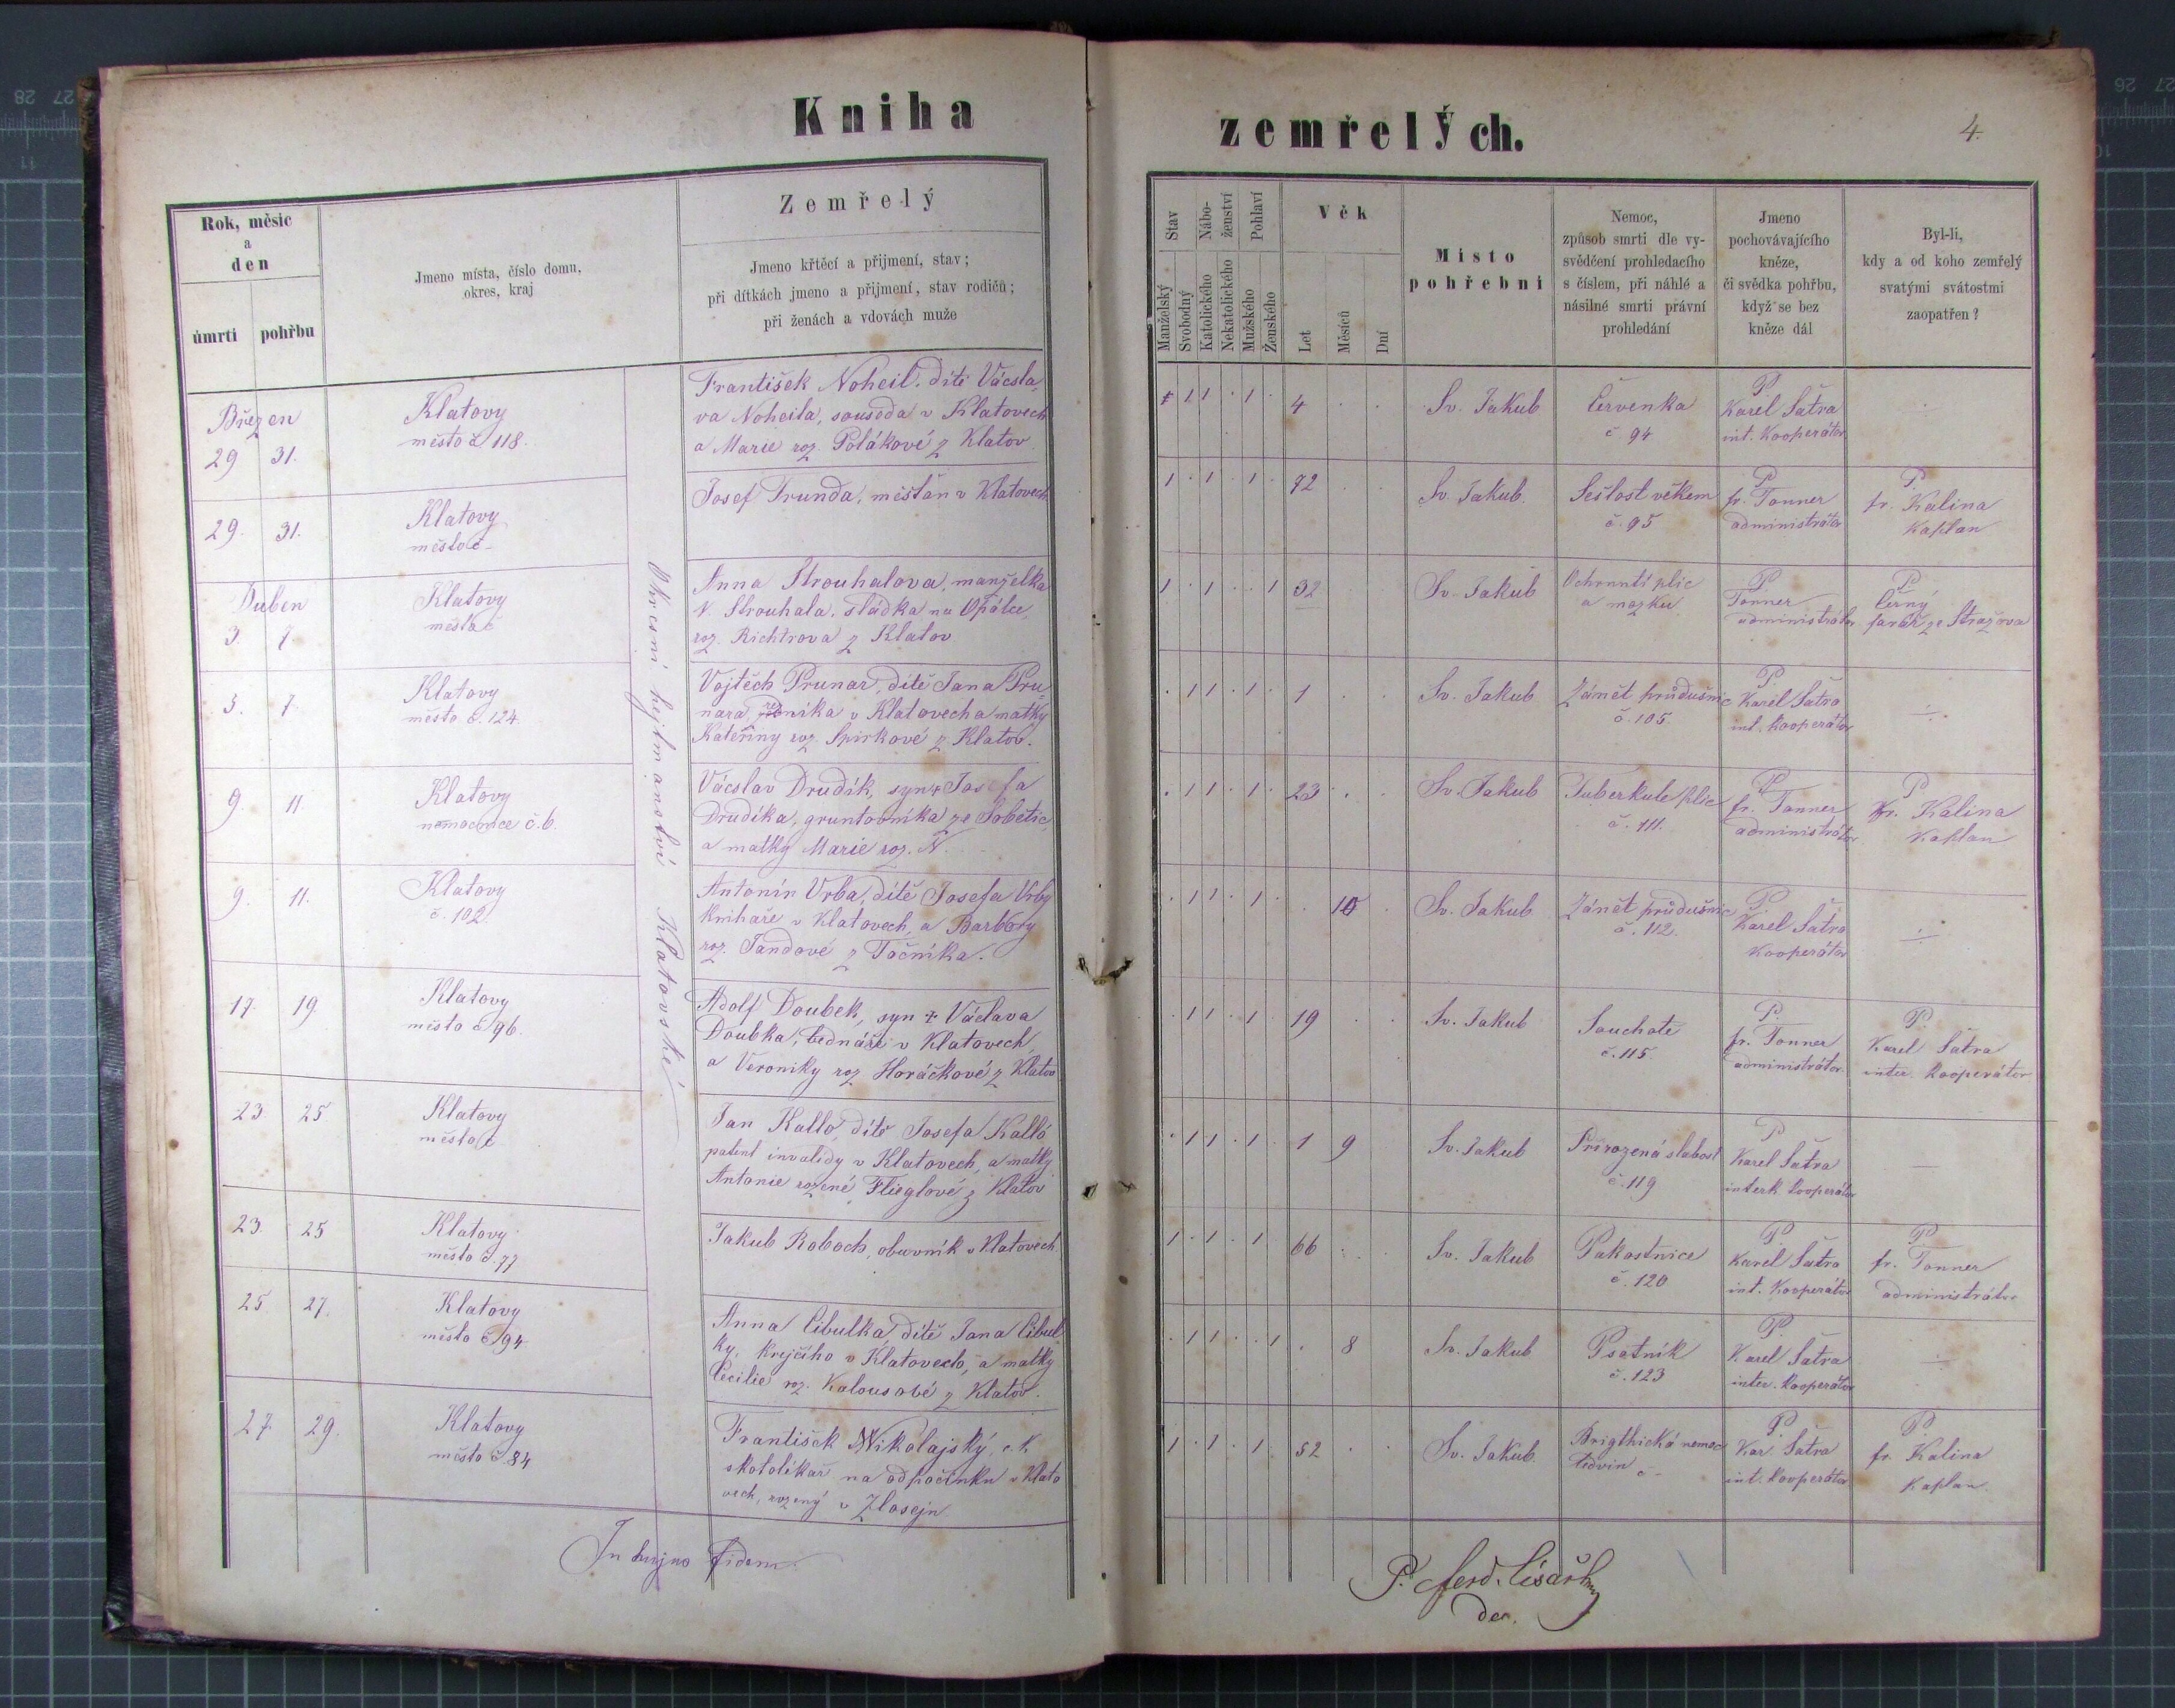 Kniha
zemřelých.
4.
Rok, měsic
a
den
úmrti
pohřbu
Jmeno místa, číslo domu,
okres, kraj
Zemřelý
Jmeno křtěcí a přijmení, stav;
při dítkách jmeno a přijmení, stav rodičů;
při ženách a vdovách muže
Stav
Manželský
Svobodný
Nábo-
ženství
Katolického
Nekatolického
Pohlaví
Mužského
Ženského
Věk
Let
Měsíců
Dní
Místo
pohřebni
Nemoc,
způsob smrti dle vy-
svědčení prohledacího
s číslem, při náhlé a
násilné smrti právní
prohledání
Jmeno
pochovávajícího
kněze,
či svědka pohřbu,
když se bez
kněze dál
Byl-li,
kdy a od koho zemřelý
svatými svátostmi
zaopatřen?
Okresní hejtmanství Klatovské
Březen
29 31.
Klatovy
město č 118.
František Noheil. dítě Vácsla-
va Noheila, souseda v Klatovech
a Marie roz. Polákové z Klatov
1 1 1 4
Sv. Jakub
Červenka
č 94
P.
Karel Šatra
int. Kooperátor
29. 31.
Klatovy
město č -
Josef Trunda, měštan v Klatovech
1 1 1 72
Sv. Jakub.
Sešlost věkem
č. 95
P
fr. Tonner
administrátor
P.
fr. Kalina
Kaplan
Duben
3. 7
Klatovy
město č
Anna Strouhalova, manželka
V. Strouhala, sládka na Opálce,
roz. Richtrova z Klatov
1 1 1 32
Sv. Jakub
Ochrnutí plic
a mozku
P
Tonner
administrátor
P
Černý
farář ze Stražova
5. 7
Klatovy
město č. 124.
Vojtěch Prunar, dítě Jana Pru-
nara, v Klatovech a matky
Kateřiny roz. Spirkové z Klatov.
1 1 1 1
Sv. Jakub
Zánět průdušnic
č. 105.
P.
Karel Šatra
int. Kooperátor
9. 11
Klatovy
nemocnice č. 6.
Vácslav Drudík, syn + Josefa
Drudíka, gruntovníka ze Sobětic,
a matky Marie roz. N.
1 1 1 23
Sv. Jakub
Tuberkule plic
č. 111.
P
fr. Tonner
administrátor
P
fr. Kalina
Kaplan
9. 11.
Klatovy
č. 102
Antonín Vrba, dítě Josefa Vrby
Knihaře v Klatovech, a Barbory
roz. Tandové z Točníka.
1 1 1 10
Sv. Jakub
Zánět průdušnic
č. 112.
P.
Karel Šatra
Kooperátor
17. 19.
Klatovy
město č 96.
Adolf Doubek, syn + Václava
Doubka, bednáře v Klatovech,
a Veroniky roz Horáčkové z Klatov
1 1 1 19
Sv. Jakub
Souchotě
č. 115.
P.
fr. Tonner
administrátor.
P.
Karel Šatra
inter. Kooperátor
23. 25
Klatovy
město č
Jan Kallo, dítě Josefa Kalló
patent invalidy v Klatovech, a matky
Antonie rozené Flieglové z Klatov
1 1 1 1 9
Sv. Jakub
Přirozená slabost
č. 119
P
Karel Šatra
interk. Kooperátor
23. 25
Klatovy
město č. 77
Jakub Roboch, obuvník v Klatovech
1 1 1 66
Sv. Jakub
Pakostnice
č. 120
P.
Karel Šatra
int. Kooperátor
P
fr. Tonner
administrátor
25. 27.
Klatovy
město č 94
Anna Cibulka, dítě Jana Cibul
ky, Krejčího v Klatovech, a matky
Cecilie roz. Kalousové z Klatov.
1 1 1 8
Sv. Jakub
Psotník
č. 123
P.
Karel Šatra
inter. Kooperátor
27. 29.
Klatovy
město č 84
František Mikolajský,
skotolékař na odpočinku v Klato
vech, rozený v Zlosejn
1 1 1 52
Sv. Jakub.
Brigthická nemoc
ledvin č -
P.
Kar Šatra
int. Kooperátor
P.
fr. Kalina
Kaplan.
In hujus fidem.
P. Ferd.